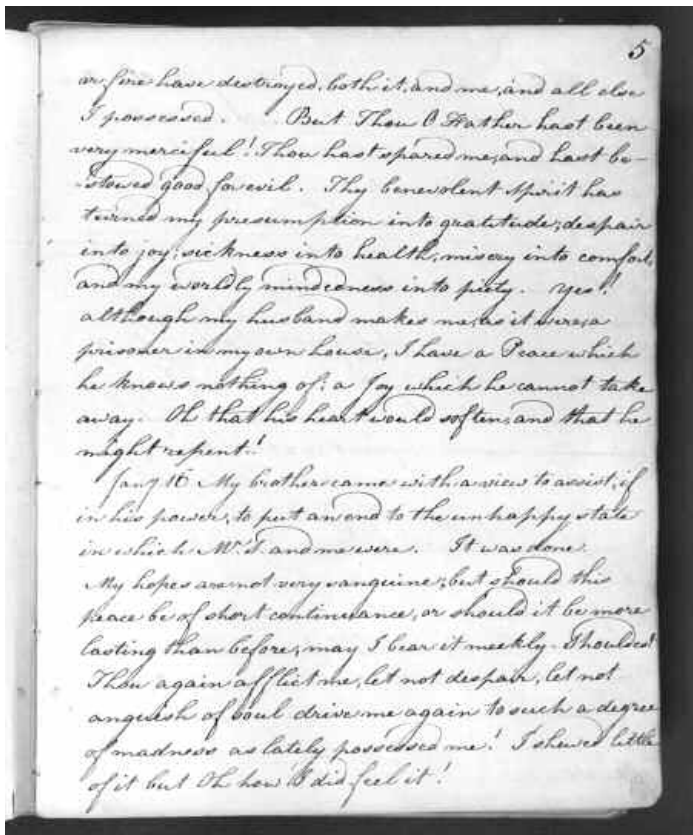 5
or fire have destroyed, both it, and me, and all else
I possessed. But Thou O Father hast been
very merciful! Thou hast spared me, and hast be-
stowed good for evil. Thy benevolent Spirit has
turned my presumption into gratitude; despair
into joy; sickness into health; misery into comfort,
and my worldly mindedness into piety. Yes!
although my husband makes me, as it were, a
prisoner in my own house, I have a Peace which
he knows nothing of; a Joy which he cannot take
away. Oh that his heart would soften, and that he
might repent!
Jany 16 My brother came with a view to assist, if
in his power, to put an end to the unhappy state
in which Mr. T. and me were. It was done.
My hopes are not very sanguine; but should this
peace be of short continuance, or should it be more
lasting than before, may I bear it meekly. Shouldest
Thou again afflict me, let not despair, let not
anguish of soul drive me again to such a degree
of madness as lately possessed me! I shewed little
of it but Oh how I did feel it!